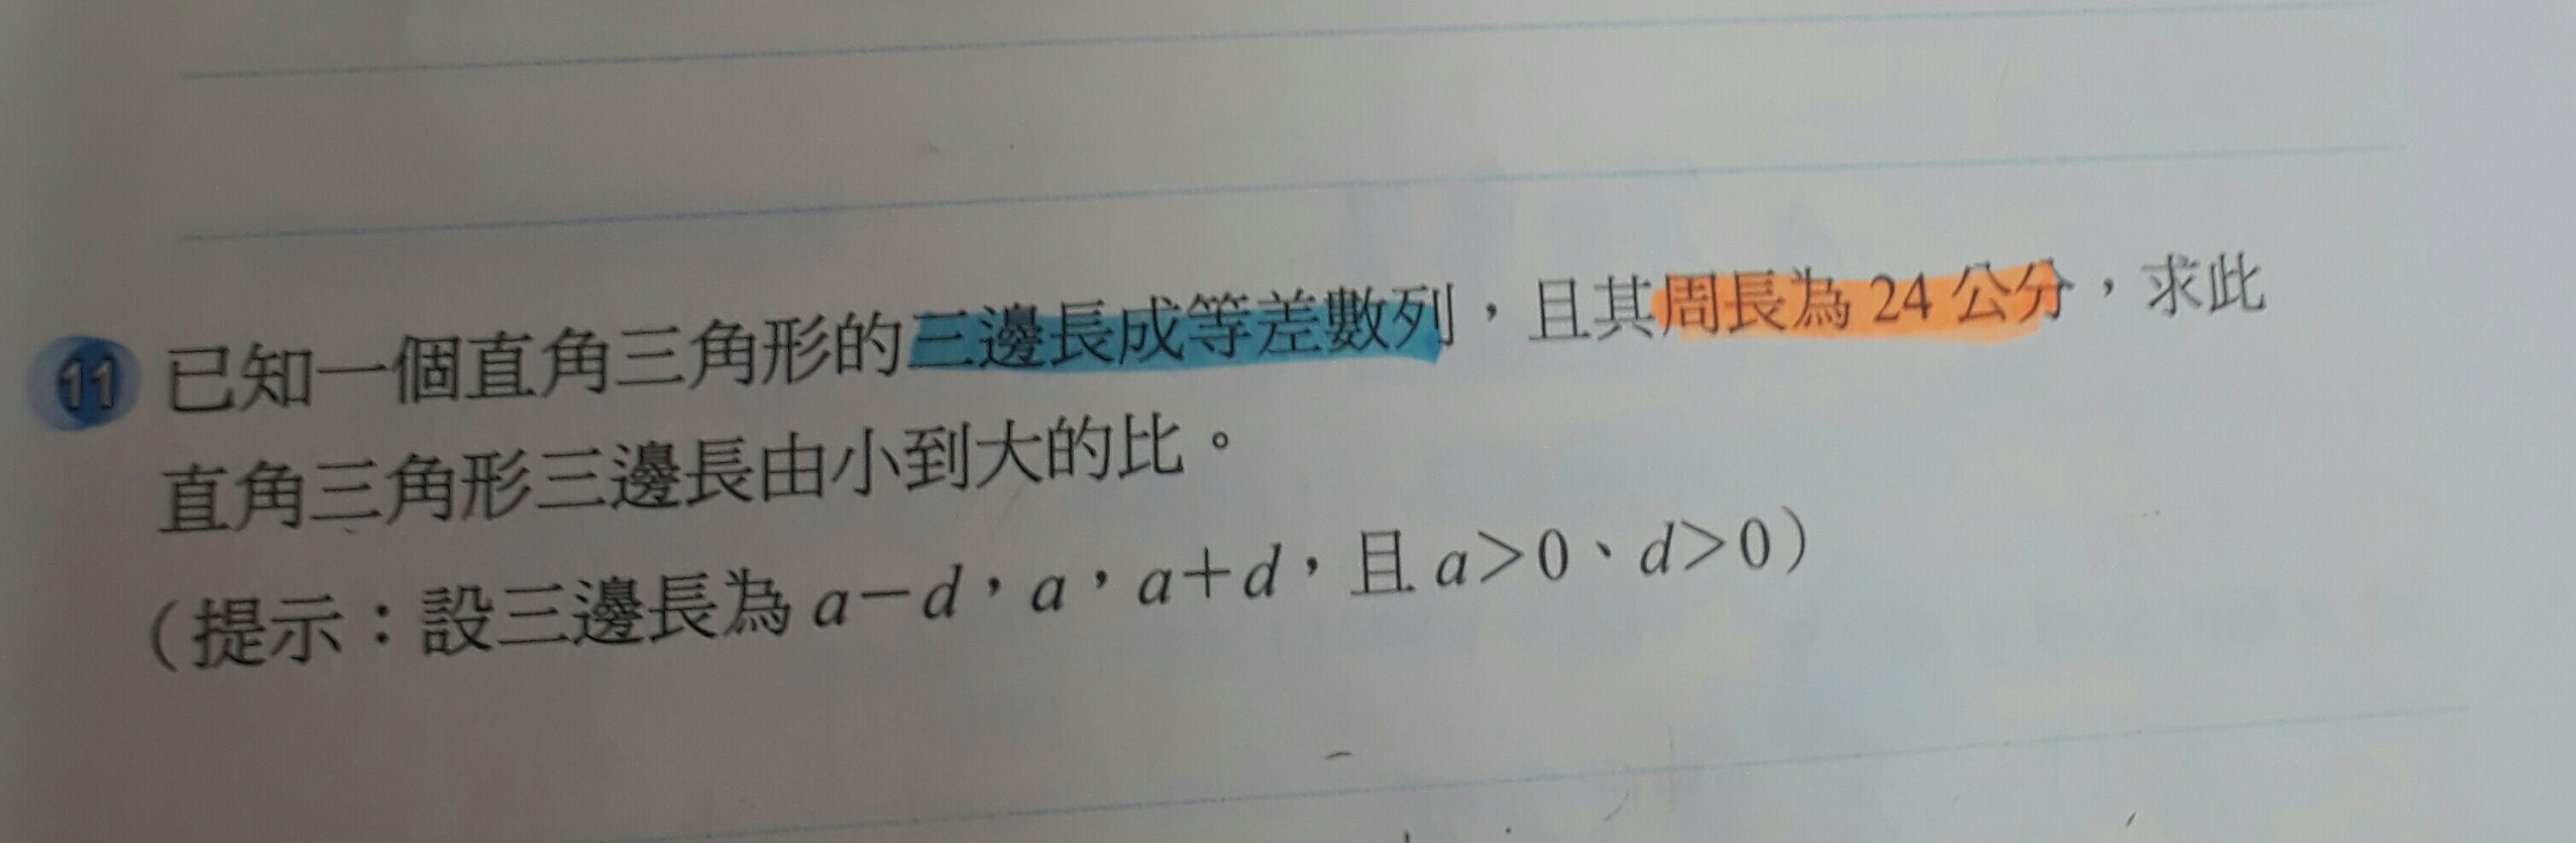 11 已知一個直角三角形的三邊長成等差數列，且其周長為 24 公分，求此
直角三角形三邊長由小到大的比。
（提示：設三邊長為 a－d，a，a＋d，且 a＞0、d＞0）